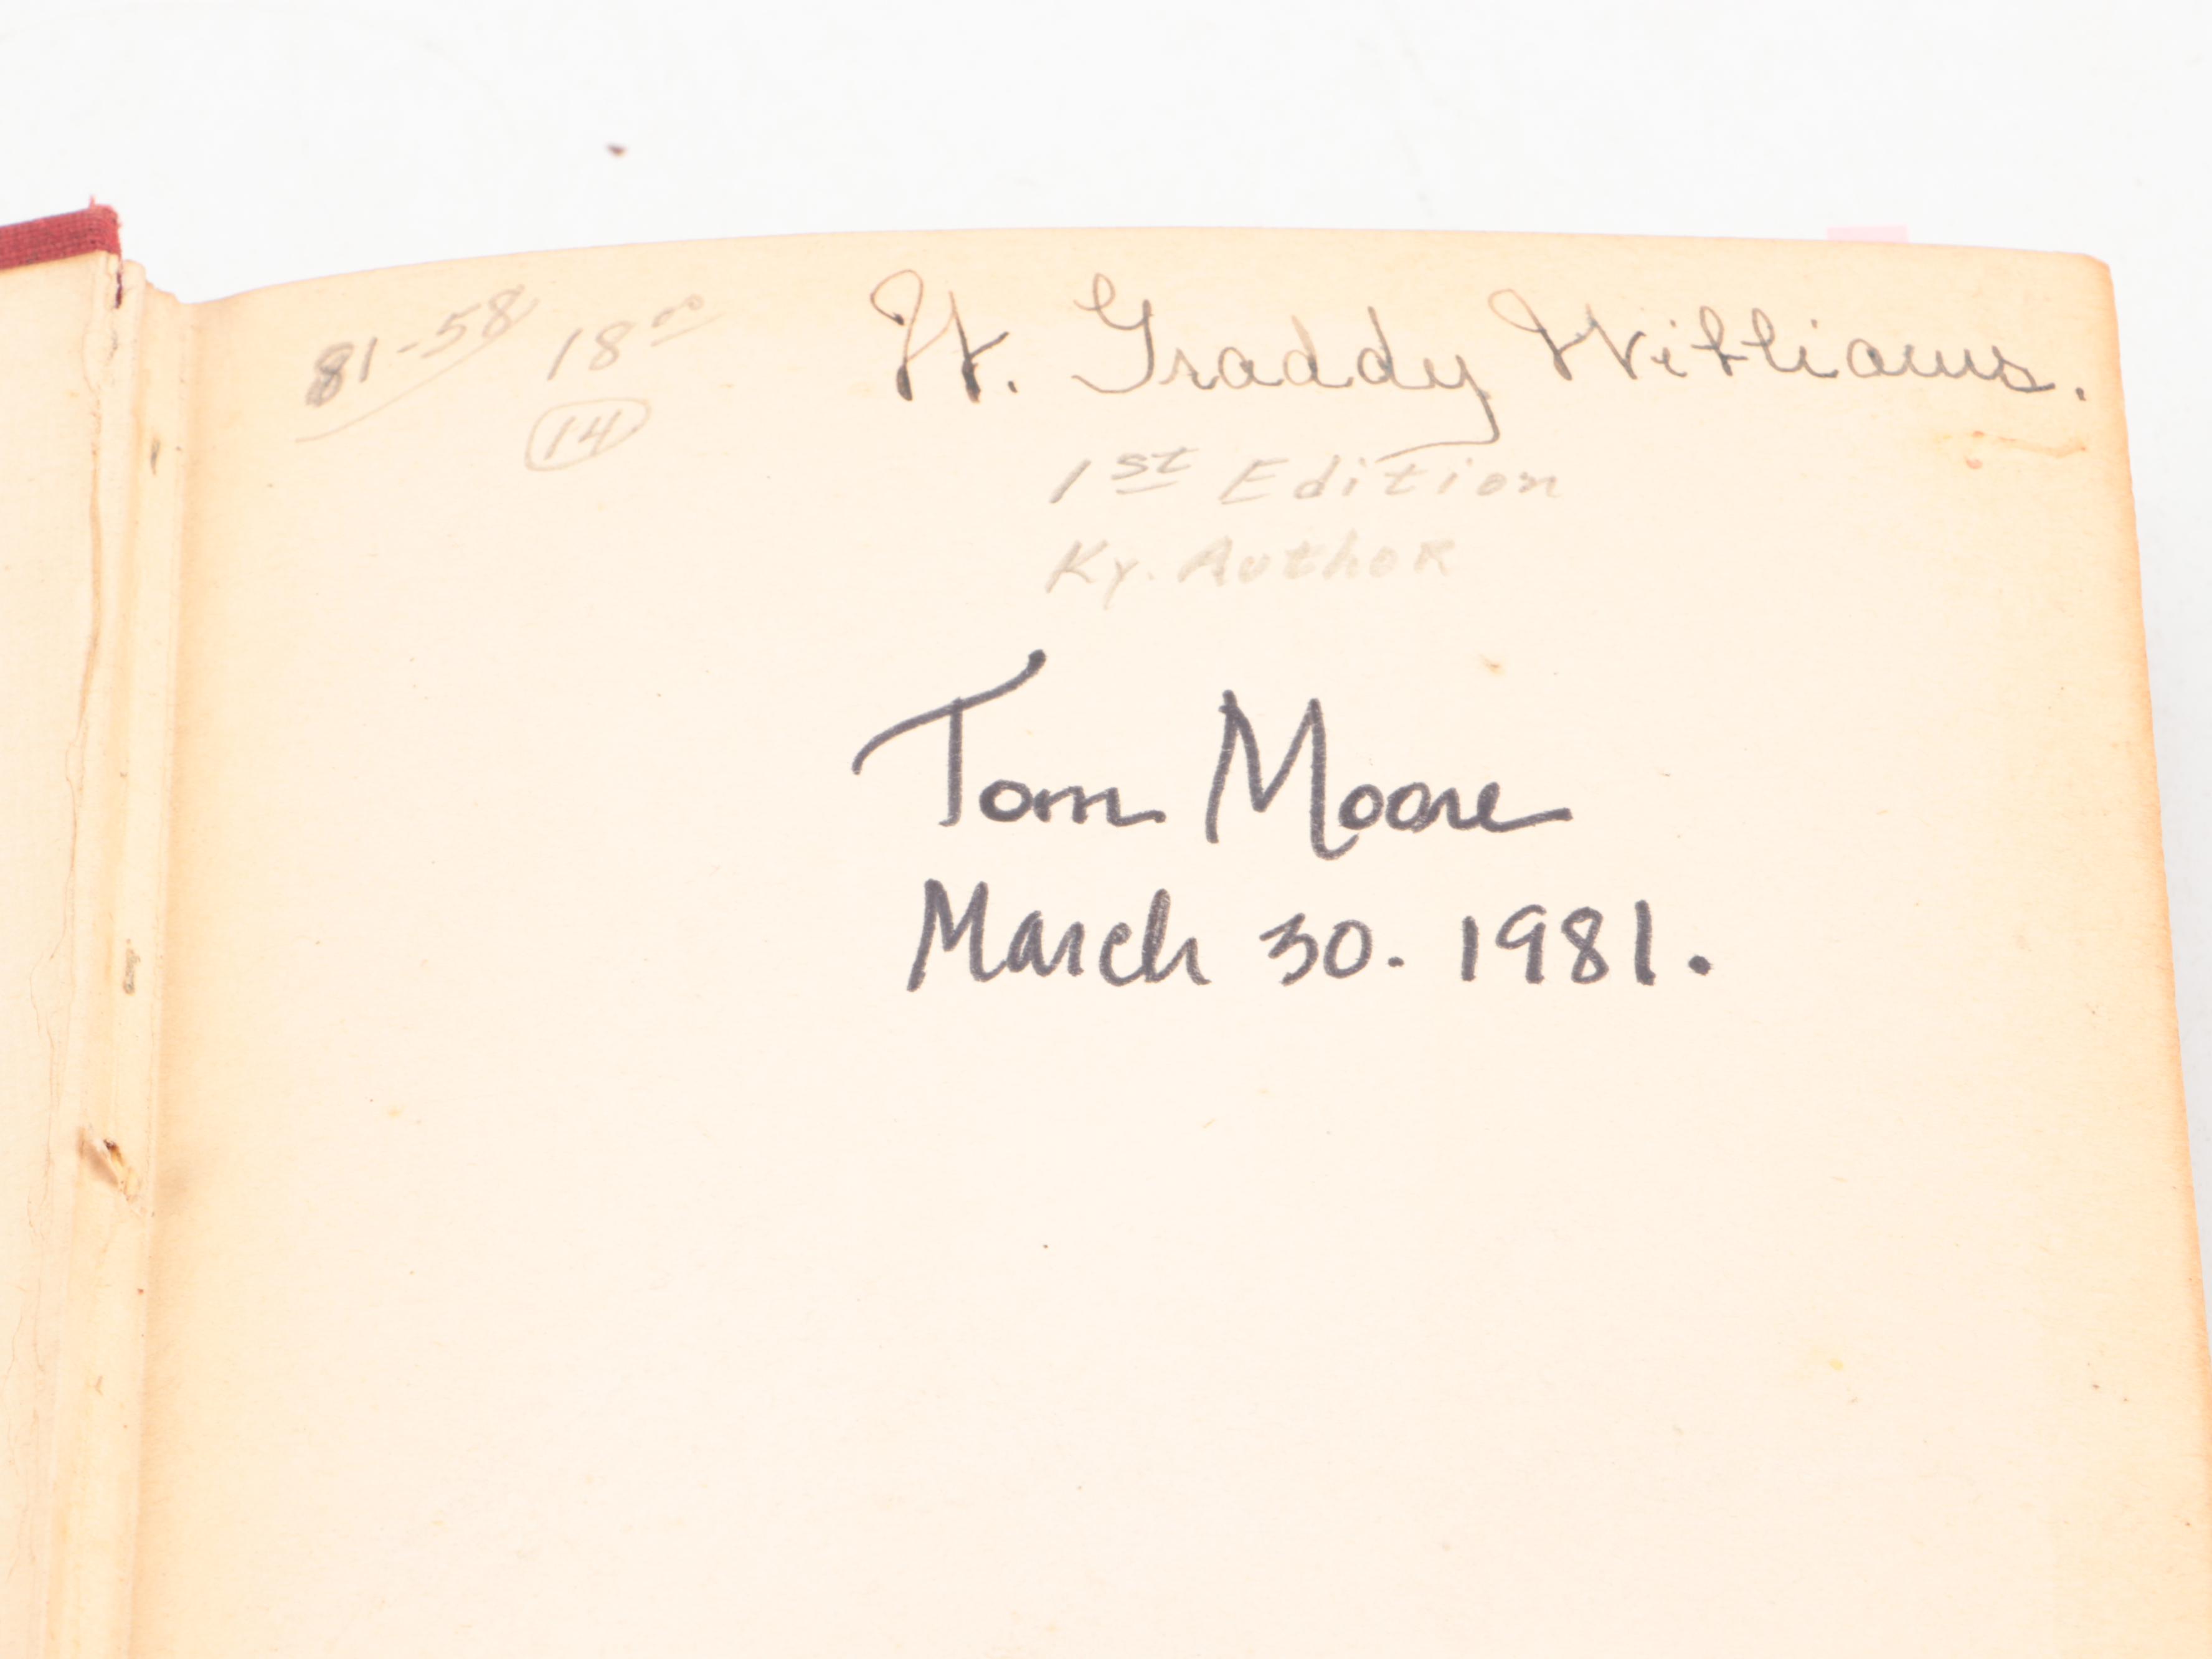 81-58 18 00 W. Graddy Williams.
14
1st Edition
Ky. Author
Tom Moore
March 30. 1981.